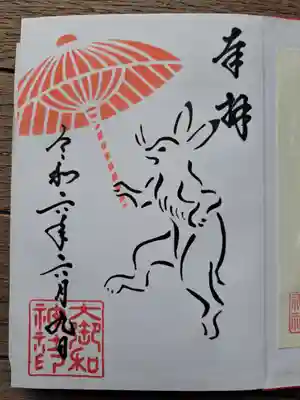 奉拝
令和六年六月九日
大御和